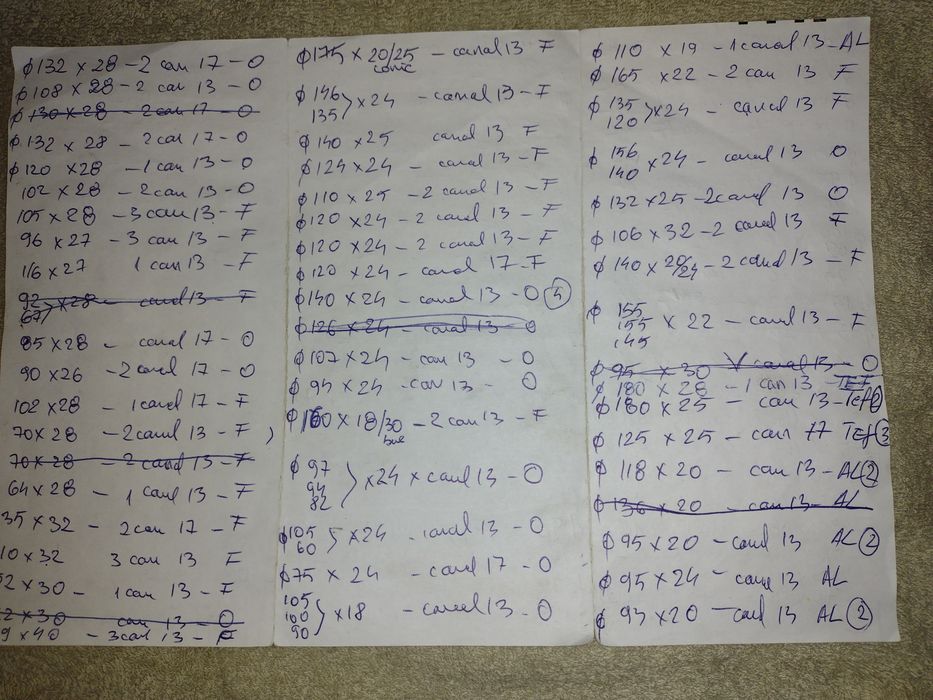 ϕ132 × 28 - 2 can 17 - O
ϕ108 × 28 - 2 can 13 - O
ϕ130 × 28 - 2 can 17 - O
ϕ132 × 28 - 2 can 17 - O
ϕ120 × 28 - 1 can 13 - O
102 × 28 - 2 can 13 - O
105 × 28 - 3 can 13 - F
96 × 27 - 3 can 13 - F
116 × 27 1 can 13 - F
92
67 } × 28 - canal 13 - F
85 × 28 - canal 17 - O
90 × 26 - 2 canal 17 - O
102 × 28 - 1 canal 17 - F
70 × 28 - 2 canal 13 - F )
70 × 28 - 2 canal 13 - F
64 × 28 - 1 canal 13 - F
35 × 32 - 2 can 17 - F
10 × 32 3 can 13 F
2 × 30 - 1 can 13 - F
2 × 30 can 13 - O
9 × 40 - 3 can 13 - F
ϕ175 × 20/25 - canal 13 F
conic
ϕ146
135 } × 24 - canal 13 - F
ϕ140 × 25 canal 13 F
ϕ124 × 24 - canal 13 - F
ϕ110 × 25 - 2 canal 13 - F
ϕ120 × 24 - 2 canal 13 - F
ϕ120 × 24 - 2 canal 13 - F
ϕ120 × 24 - canal 17 - F
ϕ140 × 24 - canal 13 - O
ϕ126 × 24 - canal 13 - O
ϕ107 × 24 - can 13 - O
ϕ94 × 24 - can 13 - O
× 18/30 - 2 can 13 - F
ϕ97
94
82 } × 24 × canal 13 - O
ϕ105
60 } × 24 - canal 13 - O
ϕ75 × 24 - canal 17 - O
105
100
90 } × 18 - canal 13 - O
ϕ110 × 19 - 1 canal 13 - AL
ϕ165 × 22 - 2 can 13 F
ϕ135
120 } × 24 - canal 13 F
ϕ156
140 × 24 - canal 13 O
ϕ132 × 25 - 2 canal 13 O
ϕ106 × 32 - 2 canal 13 F
ϕ140 × 20/24 - 2 canal 13 - F
ϕ155
155
145 × 22 - canal 13 - F
ϕ95 × 30 canal 13 - O
ϕ180 × 28 - 1 can 13 - TEF
ϕ180 × 25 - can 13 - Tef
ϕ125 × 25 - can 17 Tef 3
ϕ118 × 20 - can 13 - AL 2
ϕ136 × 20 - can 13 - AL
ϕ95 × 20 - canal 13 AL 2
ϕ95 × 24 - canal 13 AL
ϕ93 × 20 - canal 13 AL 2